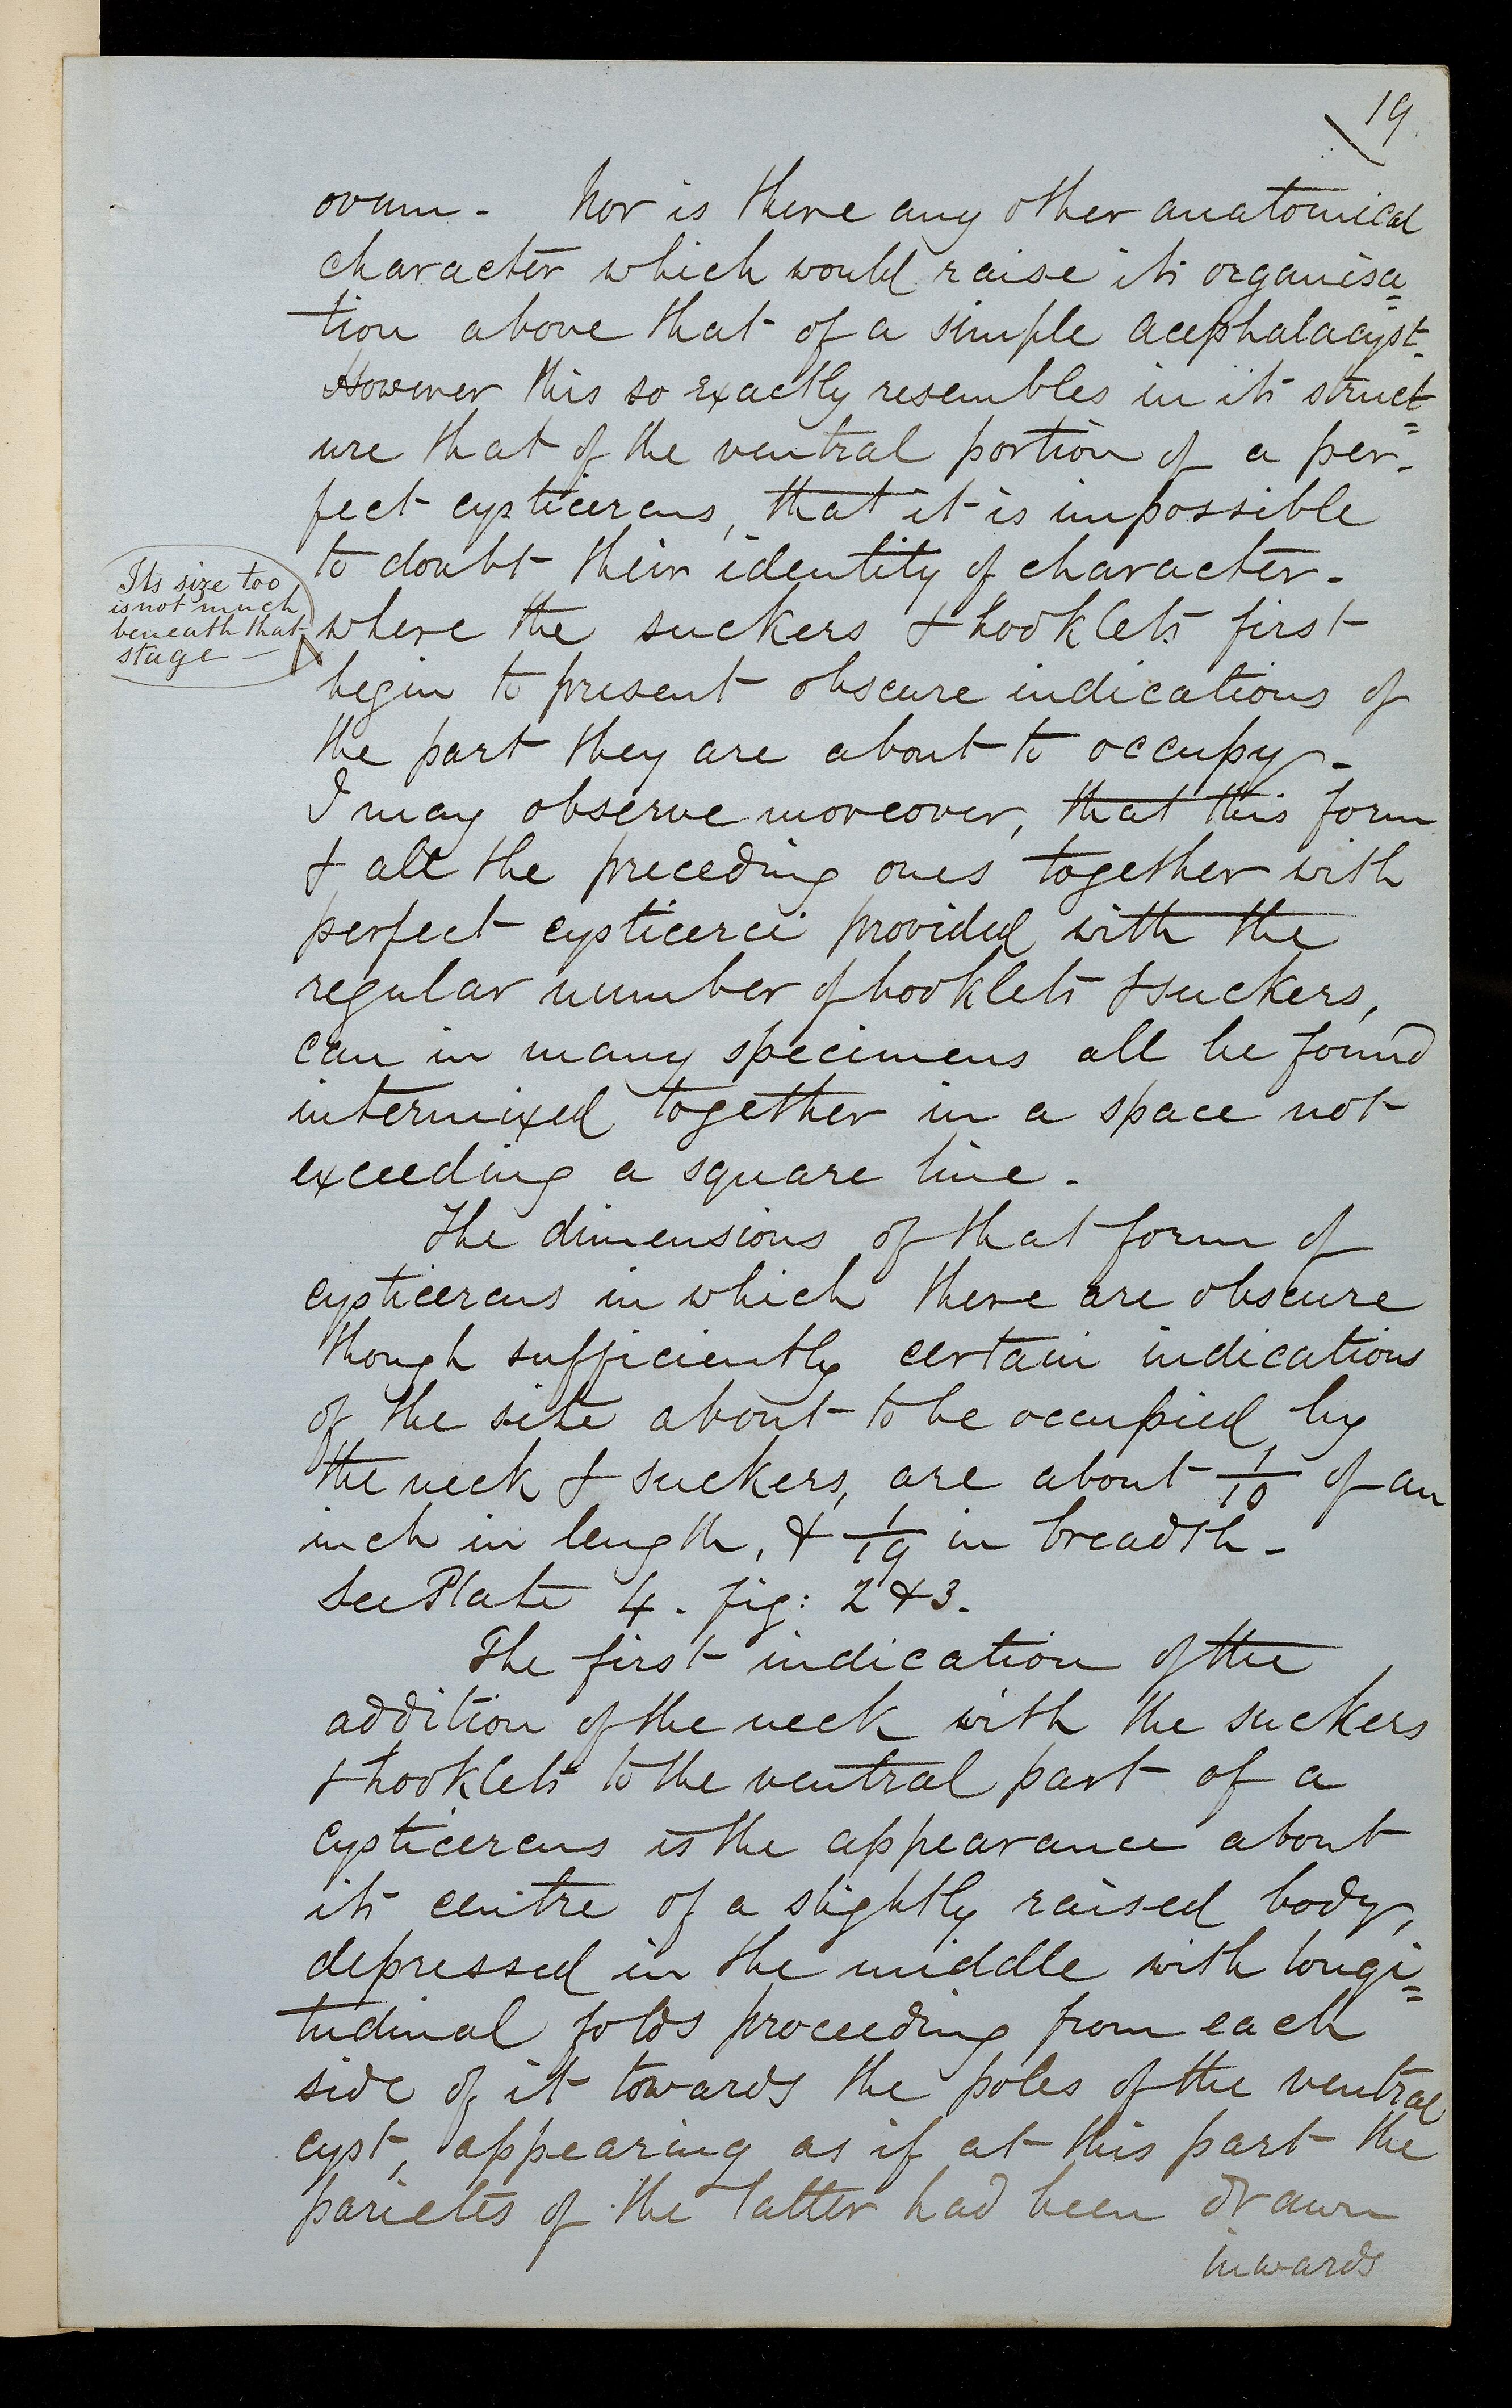 19
ovum - Nor is there any other anatomical
character which would raise its organisa=
tion above that of a simple acephalacyst.
However this so exactly resembles in its struct=
ure that of the ventral portion of a per-
fect cysticercus, that it is impossible
to doubt their identity of character -
Its size too
is not much
beneath that
stage -
where the suckers & hooklets first
begin to present obscure indications of
the part they are about to occupy -
I may observe moreover, that this form
& all the preceding ones together with
perfect cysticerci provided with the
regular number of hooklets & suckers,
can in many specimens all be found
intermixed together in a space not
exceeding a square line -
The dimensions of that form of
cysticercus in which there are obscure
though sufficiently certain indications
of the site about to be occupied by
the neck & suckers, are about 1/10 of an
inch in length, & 1/19 in breadth -
See Plate 4. fig: 2 & 3.
The first indication of the
addition of the neck with the suckers
& hooklets to the ventral part of a
cysticercus is the appearance about
its centre of a slightly raised body,
depressed in the middle with longi=
tudinal folds proceeding from each
side of it towards the poles of the ventral
cyst, appearing as if at this part the
parietes of the latter had been drawn
inwards